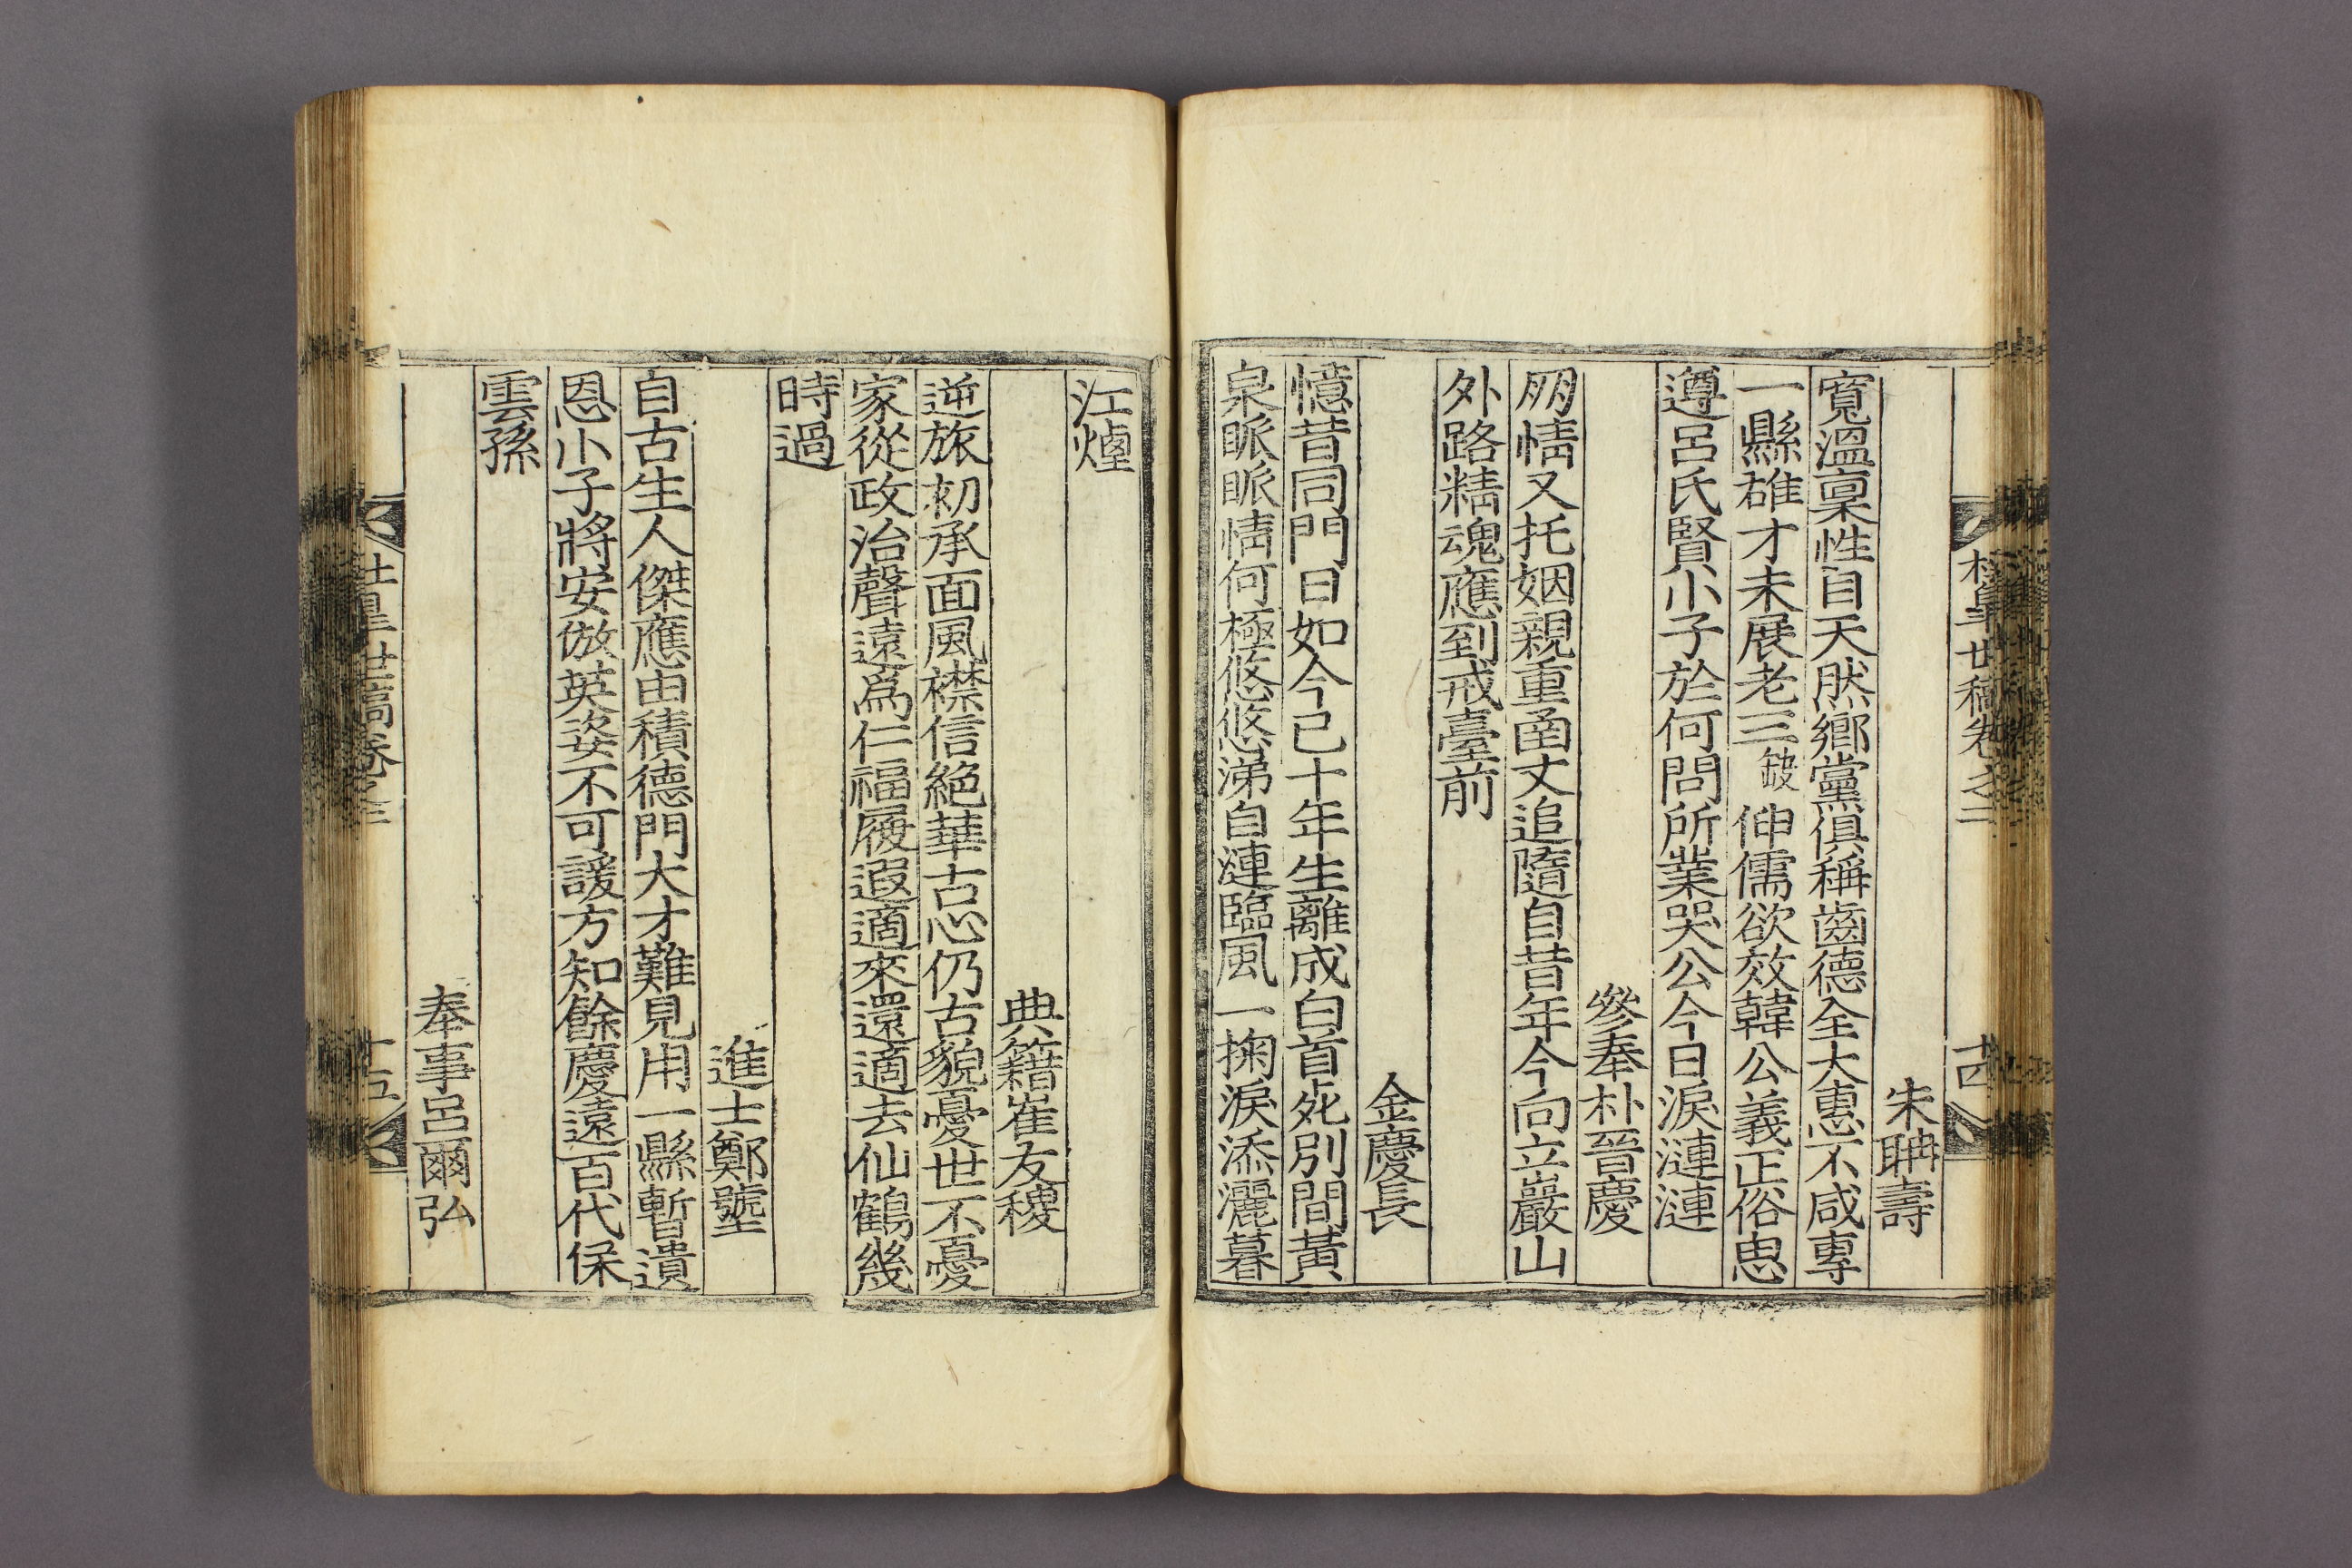 朱聃壽
寬溫稟性自天然鄉黨俱稱齒德全大惠不咸專
一縣雄才未展老三缺伸儒欲效韓公義正俗思
遵呂氏賢小子於何問所業哭公今日淚漣漣
參奉朴晉慶
朋情又托姻親重函丈追隨自昔年今向立巖山
外路精魂應到戒臺前
金慶長
憶昔同門日如今已十年生離成白首死別間黃
泉眽眽情何極悠悠涕自漣臨風一掬淚添灑暮
江煙
典籍崔友稷
逆旅初承面風襟信絕華古心仍古貌憂世不憂
家從政治聲遠爲仁福履遐適來還適去仙鶴幾
時過
進士鄭墾
自古生人傑應由積德門大才難見用一縣暫遺
恩小子將安倣英姿不可諼方知餘慶遠百代保
雲孫
奉事呂爾弘